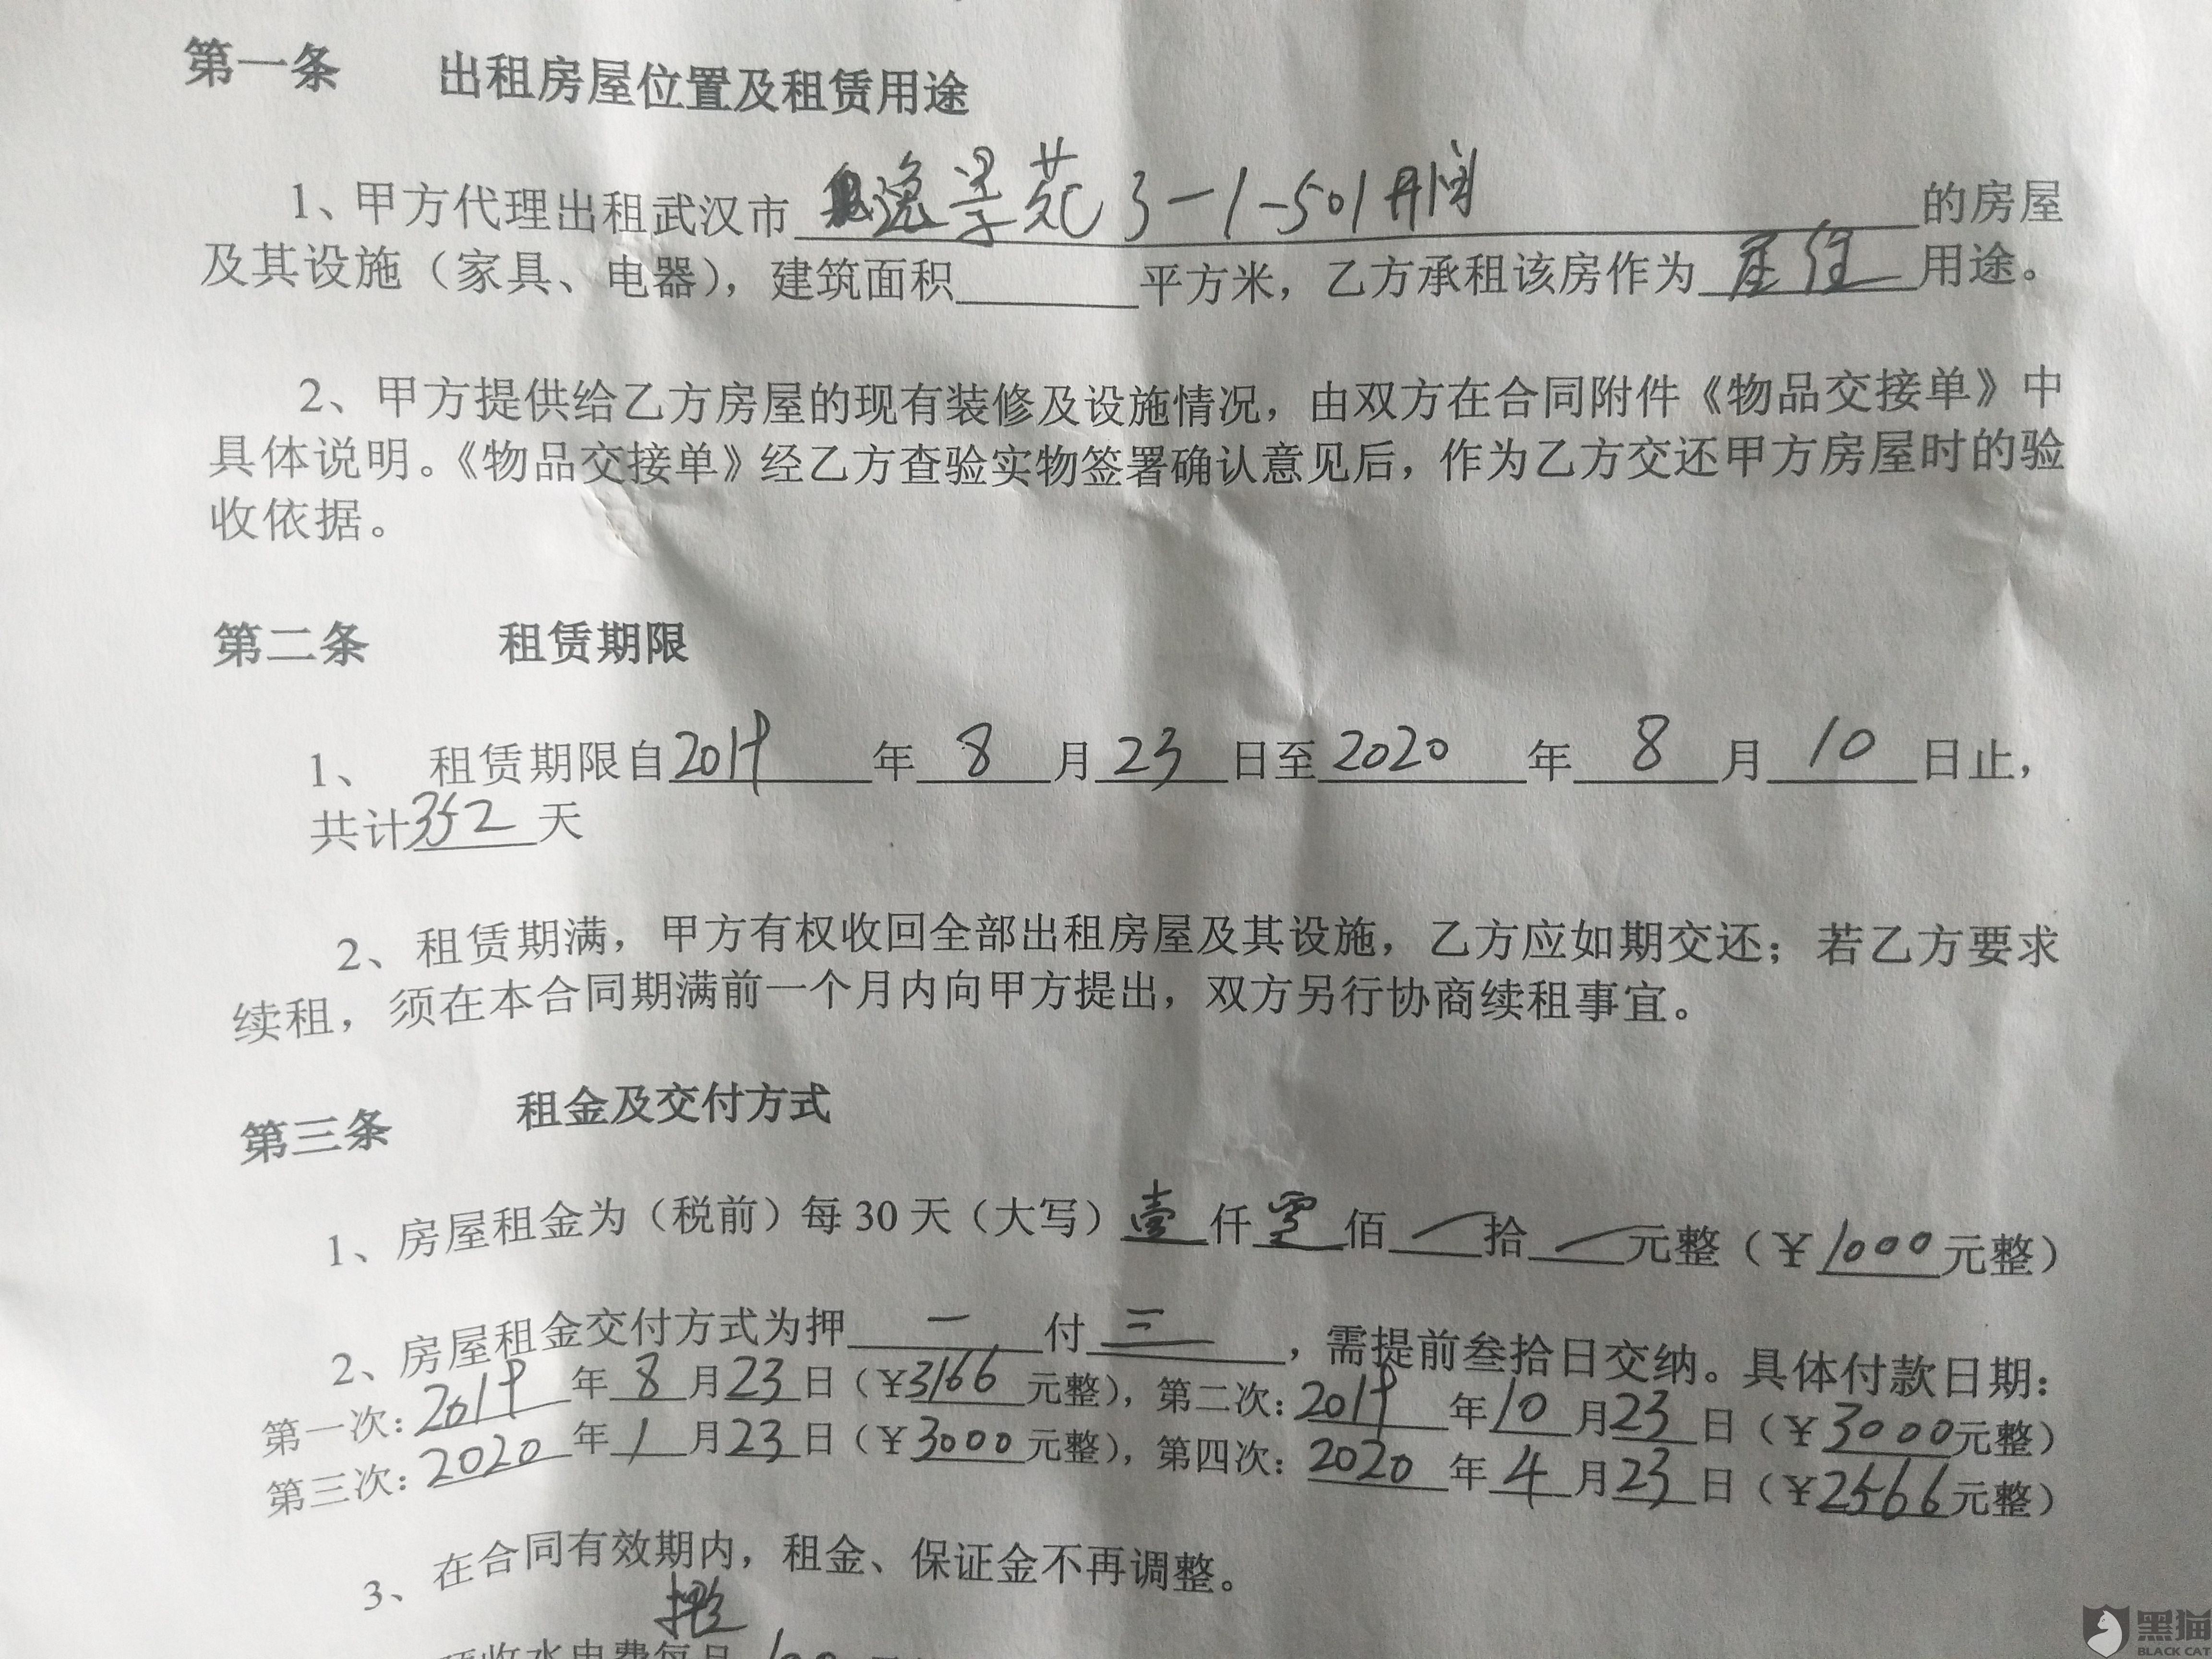 第一条 出租房屋位置及租赁用途
1、甲方代理出租武汉市逸景苑3-1-501 的房屋
及其设施（家具、电器），建筑面积______平方米，乙方承租该房作为居住用途。
2、甲方提供给乙方房屋的现有装修及设施情况，由双方在合同附件《物品交接单》中
具体说明。《物品交接单》经乙方查验实物签署确认意见后，作为乙方交还甲方房屋时的验
收依据。
第二条 租赁期限
1、 租赁期限自2019年8月23日至2020年8月10日止，
共计352天
2、租赁期满，甲方有权收回全部出租房屋及其设施，乙方应如期交还；若乙方要求
续租，须在本合同期满前一个月内向甲方提出，双方另行协商续租事宜。
第三条 租金及交付方式
1、房屋租金为（税前）每30天（大写）壹仟零佰一拾一元整（￥1000元整）
2、房屋租金交付方式为押一付三，需提前叁拾日交纳。具体付款日期：
第一次：2019年8月23日（￥3166元整），第二次：2019年10月23日（￥3000元整）
第三次：2020年1月23日（￥3000元整），第四次：2020年4月23日（￥2566元整）
3、在合同有效期内，租金、保证金不再调整。
预收水电费每月100
黑猫
BLACK CAT